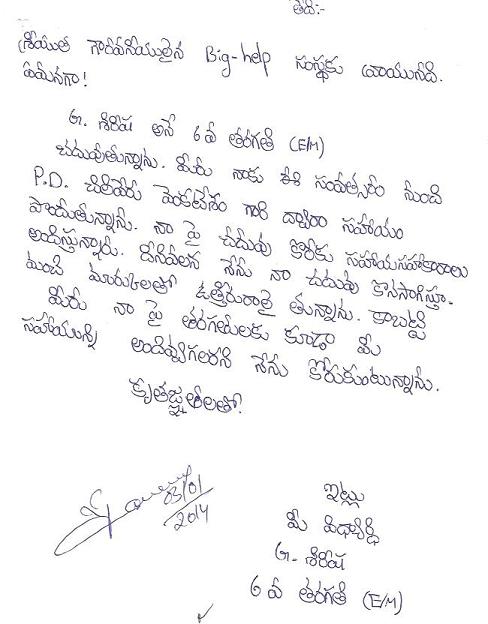 తేది:-
శ్రీయుత గౌరవనీయులైన Big-help సంస్థకు వ్రాయునది.
ఏమనగా!
G. శిరీష అనే 6వ తరగతి (E/M)
చదువుతున్నాను. మీరు నాకు ఈ సంవత్సరం నుంచి
P.D. చిలివేరు వెంకటేశం గారి ద్వారా సహాయం
పొందుతున్నాను. నా పై చదువు కొరకు సహాయసహకారాలు
అందిస్తున్నారు. దీనివలన నేను నా చదువు కొనసాగిస్తూ
మంచి మార్కులతో ఉత్తీర్ణురాలై తున్నాను. కాబట్టి
మీరు నా పై తరగతులకు కూడా మీ
సహాయాన్ని అందివ్వగలరని నేను కోరుకుంటున్నాను.
కృతజ్ఞతలతో.
03/01
2014
ఇట్లు
మీ విద్యార్థి
G. శిరీష
6వ తరగతి (E/M)